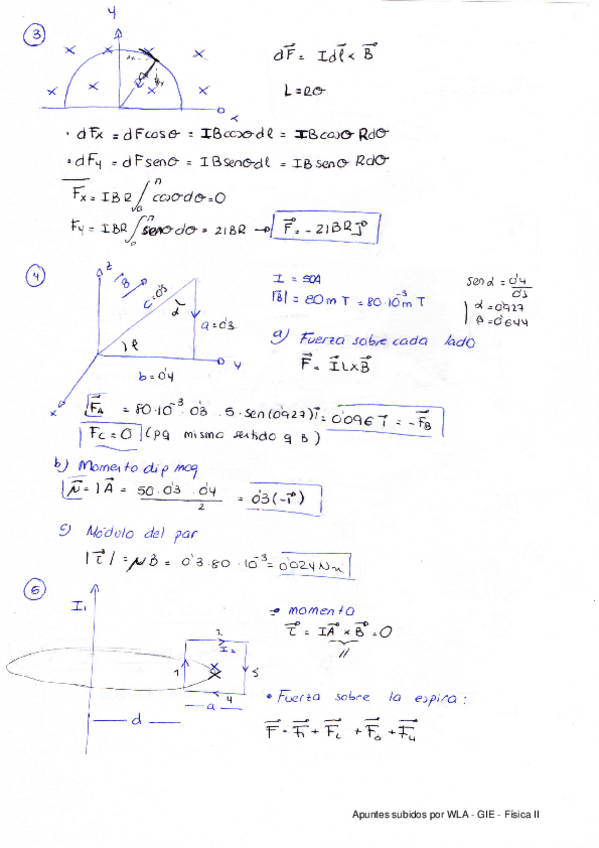 ③
y
x
dF⃗ = I dl⃗ × B⃗
L = RΘ
· dFx = dF cosΘ = IB cosΘ dl = IB cosΘ RdΘ
· dFy = dF senΘ = IB senΘ dl = IB senΘ RdΘ
Fx = IBR ∫₀^π cosΘ dΘ = 0
Fy = IBR ∫₀^π senΘ dΘ = 2IBR → F⃗ = -2IBR J⃗
④
z
B⃗
c=0'5
α
a=0'3
b=0'4
y
x
I = 50A
|B⃗| = 80 mT = 80·10⁻³ mT
sen α = 0'4/0'5
α = 0'927
β = 0'644
a) Fuerza sobre cada lado
F⃗ = I⃗L × B⃗
F⃗A = 80·10⁻³ · 0'3 · 5 · sen(0'927) i⃗ = 0'096 i⃗ = -F⃗B
Fc = 0 (pq mismo sentido q B)
b) Momento dip mag
μ⃗ = I A⃗ = 50·0'3·0'4/2 = 0'3(-i⃗)
c) Módulo del par
|τ⃗| = μB = 0'3·80·10⁻³ = 0'024 Nm
⑤
I₁
2
I₂
1
4
a
d
⇒ momento
τ⃗ = IA⃗ × B⃗ = 0
//
• Fuerza sobre la espira:
Apuntes subidos por WLA - GIE - Física II